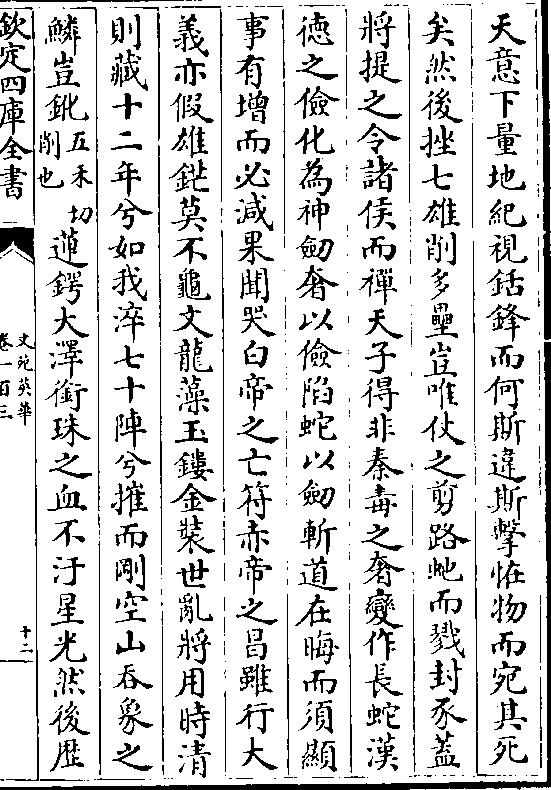 天意下量地紀視銛鋒而何斯違斯擊怪物而宛其死
矣然後挫七雄削多壘豈唯仗之剪路虵而戮封豕蓋
將提之令諸侯而禪天子得非秦毒之奢變作長蛇漢
徳之儉化為神劒奢以儉陷蛇以劒斬道在晦而須顯
事有增而必減果聞哭白帝之亡符赤帝之昌雖行大
義亦假雄鋩莫不龜文龍藻玉鏤金裝世亂將用時清
則藏十二年兮如我淬七十陣兮摧而剛空山吞象之
鱗豈鈋五禾切削也蓮鍔大澤銜珠之血不汙星光然後歴
欽定四庫全書
文苑英華
卷一百三
十二